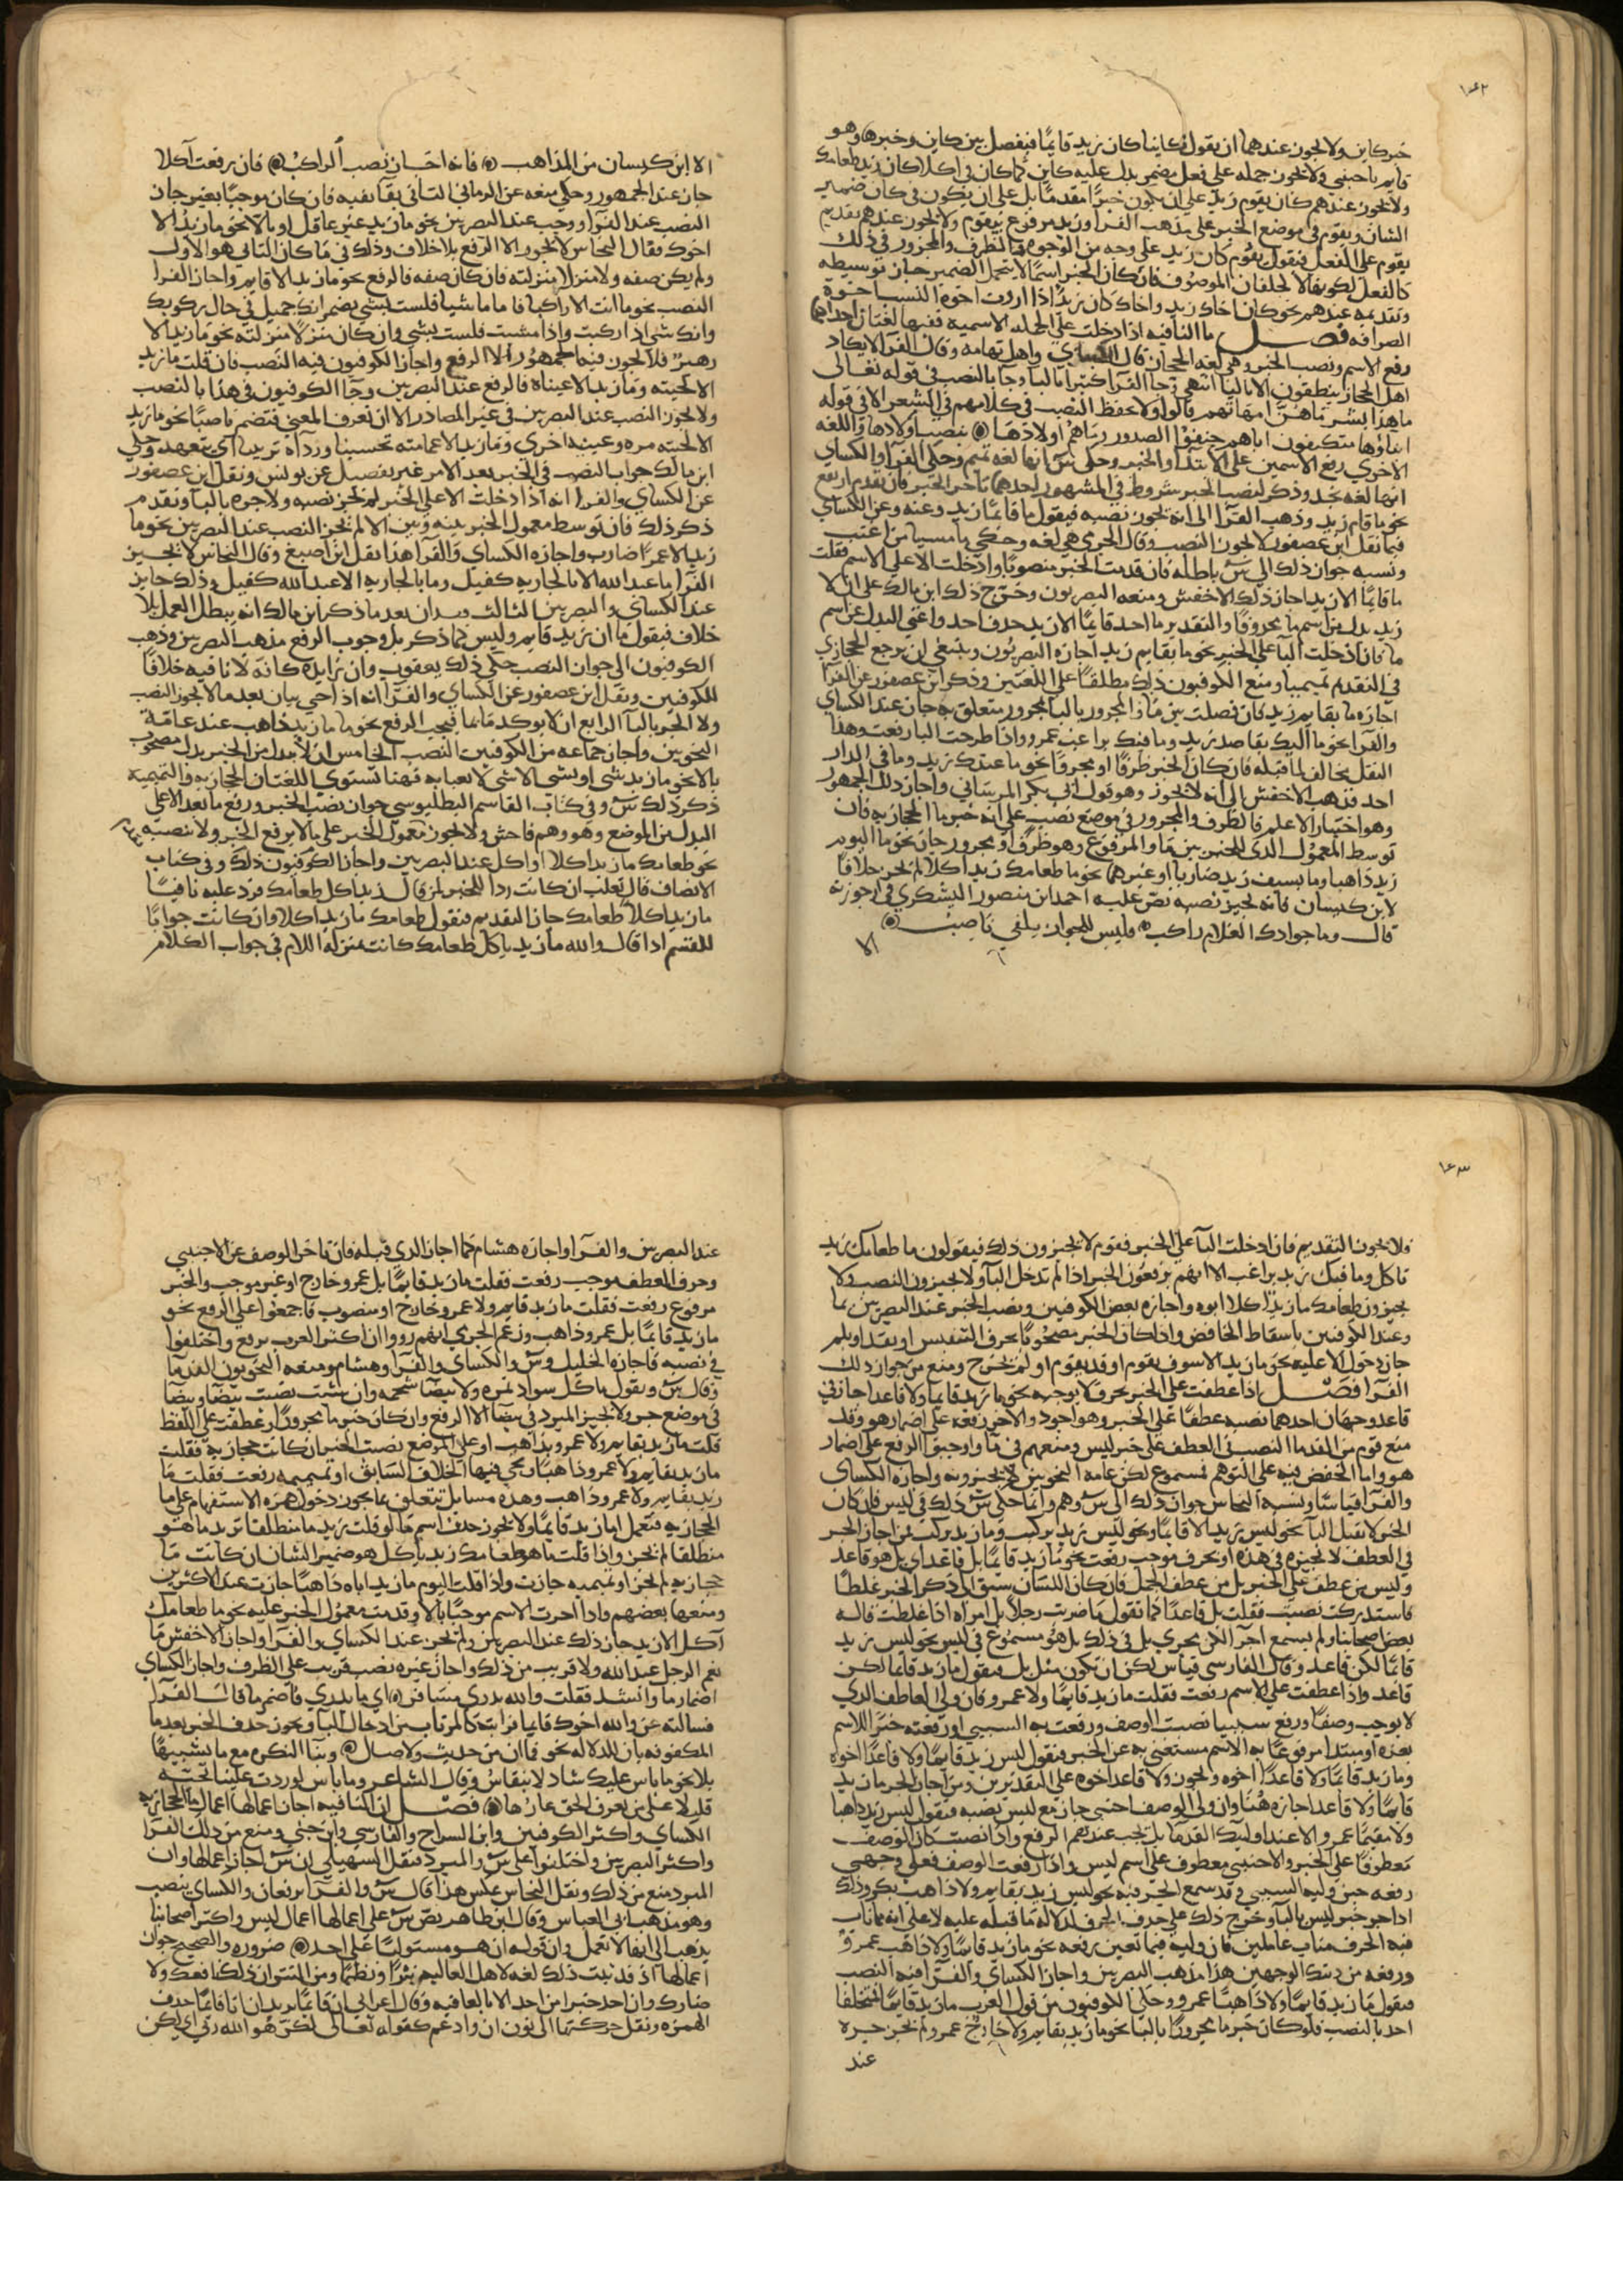 ١٦٢
خبركاين ولا يجوز عندهما ان يقول كاينا كان زيد قايمًا فيفصل بين كاين وخبرها وهو
قايم باجنبي ولا يجوز حمله على فعل مضمر يدل عليه كاين كما كان في اكلا كان زيد طعامك
ولا يجوز عندهم كان يقوم زيد على ان يكون خبرًا مقدمًا بل على ان يكون في كان ضمير
الشان ويقوم في موضع الخبر على مذهب الفرا وزيد مرفوع بيقوم ولا يجوز عندهم تقديم
يقوم على الفعل فيقول يقوم كان زيد على وجه من الوجوه والظرف والمجرور في ذلك
كالفعل لكونهما لا يخلفان الموصوف فان كان الخبر اسمًا لا يتحمل الضمير جاز توسيطه
وتقديمه عندهم نحو كان اخاك زيد واخاك كان زيد اذا اردت اخوة النسب اخوة
الصداقه فصل ما النافيه اذا دخلت على الجملة الاسميه ففيها لغتان احداهما
رفع الاسم ونصب الخبر وهي لغه الحجاز قال الكساي واهل تهامه وقال الفرا لا يكاد
اهل الحجاز ينطقون الا بالبا انتهى وجا القرآ كثيرا بالبا وجا بالنصب في قوله تعالى
ما هذا بشرا ما هن امهاتهم قالوا ولا يحفظ النصب في كلامهم في الشعر الا في قوله
ابناؤها متكنفون اباهم حنقوا الصدور وما هم اولادها بنصب اولادها واللغه
الاخرى رفع الاسمين على الابتدا والخبر وحكى س انها لغه تميم وحكى الفرا والكساي
انها لغه نجد وذكر لنصب الخبر شروط في المشهور احدها تاخر الخبر فان تقدم ارتفع
نحو ما قايم زيد وذهب الفرا الى انه يجوز نصبه فيقول ما قايمًا زيد وعنه وعن الكساي
فيما نقل ابن عصفور لا يجوز النصب وقال الجرمي هي لغه وحكي ما مسيا من اعتب
ونسبه جواز ذلك الى س باطله فان قدمت الخبر منصوبًا وادخلت الا على الاسم فقلت
ما قايمًا الا زيد اجاز ذلك الاخفش ومنعه البصريون وخرج ذلك ابن مالك على ان الا
زيد بدل من اسم ما محذوفًا والتقدير ما احد قايمًا الا زيد حذف احد واغنى البدل عن اسم
ما فان ادخلت البا على الخبر نحو ما بقايم زيد اجازه البصريون وينبغي ان يرجع الحجازي
في التقدم تميميا ومنع الكوفيون ذلك مطلقًا على اللغتين وذكر ابن عصفور عن الفرا
اجازه ما بقايم زيد فان فصلت بين ما والمجرور بالبا بمجرور متعلق به جاز عند الكساي
والفرا نحو ما اليك بقاصد زيد وما فيك براغب عمرو واذا طرحت البا رفعت وهذا
النقل مخالف لما قبله فان كان الخبر ظرفًا او مجرورًا نحو ما عندك زيد وما في الدار
احد فذهب الاخفش الى انه لا يجوز وهو قول ابي بكر المرساني واجاز ذلك الجمهور
وهو اختيار الاعلم فالظرف والمجرور في موضع نصب على انه خبر ما الحجازيه فان
توسط المعمول الذي للخبر بين ما والمرفوع وهو ظرف او مجرور جاز نحو ما اليوم
زيد ذاهبا وما بسيف زيد ضاربا او غيرهما نحو ما طعامك زيد اكلا لم يجز خلافًا
لابن كيسان فانه يجيز نصبه نص عليه احمد ابن منصور اليشكري في ارجوزته
قال وما جوادك الغلام راكب وليس للجواز يلفى ناصب
الا
الا ابن كيسان من المذاهب فانه اجاز نصب الراكب فان رفعت آكلا
جاز عند الجمهور وحكي منعه عن الرماني الثاني بقا نفيه فان كان موجبًا بغير جاز
النصب عند الفرا ووجب عند البصريين نحو ما زيد غير عاقل او بالا نحو ما زيد الا
اخوك فقال النحاس لا يجوز الا الرفع بلا خلاف وذلك في ما كان الثاني هو الاول
ولم يكن صفه ولا منزلا منزلته فان كان صفه فالرفع نحو ما زيد الا قايم واجاز الفرا
النصب نحو ما انت الا راكبا فاما ماشيا فلست بشي يضمر انك جميل في حال ركوبك
وانك شي اذا ركبت واذا مشيت فلست بشي وان كان منزلًا منزلته نحو ما زيد الا
زهير فلا يجوز فيه الجمهور الا الرفع واجاز الكوفيون فيه النصب فان قلت ما زيد
الا لحيته وما زيد الا عيناه فالرفع عند البصريين وجا الكوفيون في هذا بالنصب
ولا يجوز النصب عند البصريين في غير المصادر الا ان تعرف المعنى فتضمر ناصبًا نحو ما زيد
الا لحيته مره وعينيه اخرى وما زيد الا عمامته تحسينا ورداه تزيينا اي يتعهد وحكى
ابن مالك جواز النصب في الخبر بعد الا من غير تفصيل عن يونس ونقل ابن عصفور
عن الكساي والفرا انه اذا دخلت الا على الخبر لم يجز نصبه ولا جره بالبا وتقدم
ذكر ذلك فان توسط معمول الخبر بينه وبين الا لم يجز النصب عند البصريين نحو ما
زيد الا عمرًا ضارب واجازه الكساي والفرا هذا نقل ابن اصبغ وقال النحاس لا يجيز
الفرا ما عبد الله الا بالجاريه كفيل وما بالجاريه الا عبد الله كفيل وذلك جايز
عند الكساي والبصريين الثالث فقدان بعد ما ذكر ابن مالك انه يبطل العمل بلا
خلاف فيقول ما ان زيد قايم وليس كما ذكر بل وجوب الرفع مذهب البصريين وذهب
الكوفيون الى جواز النصب حكى ذلك يعقوب وان زايده كافه لا نافيه خلافًا
للكوفيين ونقل ابن عصفور عن الكساي والفرا انه اذا جي بان بعد ما لا يجوز النصب
ولا الجر بالبا الرابع ان لا يوكد ما بما فيجب الرفع نحو ما ما زيد ذاهب عند عامة
النحويين واجاز جماعه من الكوفيين النصب الخامس ان لا يبدل من الخبر بدل مصحوب
بالا نحو ما زيد بشي او بشي الا شي لا يعبا به فهنا تستوي اللغتان الحجازيه والتميميه
ذكر ذلك س وفي كتاب القاسم البطليوسي جواز نصب الخبر ورفع ما بعد الا على
البدل من الموضع وهو وهم فاحش ولا يجوز معمول الخبر على ما لا يرفع الخبر ولا نصبه
نحو طعامك ما زيد اكلا او اكل عند البصريين واجاز الكوفيون ذلك وفي كتاب
الانصاف قال ثعلب ان كانت ردا للخبر لمن قال لزيد اكل طعامك فرد عليه نافيًا
ما زيد اكلا طعامك جاز التقديم فنقول طعامك ما زيد اكلا وان كانت جوابًا
للقسم اذا قال والله ما زيد باكل طعامك كانت بمنزله اللام في جواب الكلام
١٦٣
ولا يجوز التقديم فان ادخلت البا على الخبر فقوم لا يجيزون ذلك فيقولون ما طعامك زيد
باكل وما فيك زيد براغب الا انهم يرفعون الخبر اذا لم تدخل البا ولا يجيزون النصب ولا
يجيزون طعامك ما زيد اكلا ابوه واجازه بعض الكوفيين ونصب الخبر عند البصريين بما
وعند الكوفيين باسقاط الخافض واذا كان الخبر مصحوبًا بحرف التنفيس او بقد او بلم
جاز دخول الا عليه نحو ما زيد الا سوف يقوم او قد يقوم او لم يخرج ومنع من جواز ذلك
الفرا فصل اذا عطفت على الخبر بحرف لا يوجبه نحو ما زيد قايما ولا قاعدا جاز في
قاعد وجهان احدهما نصبه عطفًا على الخبر وهو اجود والاخر رفعه على اضمار هو وقد
منع قوم من القدما النصب في العطف على خبر ليس ومنعهم في ما واوجبوا الرفع على اضمار
هو واما الخفض فيه على التوهم فمسموع لكن عامه النحويين لا يجيزونه واجازه الكساي
والفرا قياسًا ونسبه النحاس جواز ذلك الى س وهم وانما حكى س ذلك في ليس فان كان
الخبر لا يقبل البا نحو ليس زيد الا قايما ونحو ليس زيد يركب وما زيد يركب فمن اجاز الجر
في العطف لا يجيزه في هذه او بحرف موجب رفعت نحو ما زيد قايمًا بل قاعد اي بل هو قاعد
وليس من عطف على الخبر بل من عطف الجمل فان كان اللسان سبق الى ذكر الخبر غلطًا
فاستدركت نصبت فقلت بل قاعدًا كما تقول ما ضربت رجلًا بل امراه اذا غلطت قاله
بعض اصحابنا ولم يسمع اجرا لكن مجرى بل في ذلك بل هو مسموع في ليس نحو ليس زيد
قايمًا لكن قاعد وقال الفارسي قياس لكن ان تكون مثل بل فيقول ما زيد قايما لكن
قاعد واذا عطفت على الاسم رفعت فقلت ما زيد قايمًا ولا عمرو فان ولي العاطف الذي
لا يوجب وصفًا ورفع سببيا نصبت الوصف ورفعت به السببي او رفعته خبرا للاسم
بعده او مبتدا مرفوعًا به الاسم مستغنى به عن الخبر فتقول ليس زيد قايمًا ولا قاعدًا اخوه
وما زيد قايمًا ولا قاعدًا اخوه ويجوز ولا قاعد اخوه على التقديرين ومن اجاز الجر ما زيد
قايمًا ولا قاعد اجازه هنا وان ولي الوصف اجنبي جاز مع ليس نصبه فيقول ليس زيد ذاهبا
ولا مقيمًا عمرو الا عند اوليك القدما بل يجب عندهم الرفع واذا نصبت كان الوصف
معطوفًا على الخبر والاجنبي معطوف على اسم ليس واذا رفعت الوصف فعلى وجهي
رفعه حين وليه السببي وقد سمع الجر فيه نحو ليس زيد بقايم ولا ذاهب بكر وذلك
اذا جر خبر ليس بالبا وخرج ذلك على حذف الحرف لدلالة ما قبله عليه لا على انه مما ناب
فيه الحرف مناب عاملين فان وليه فيما تعين رفعه نحو ما زيد قايمًا ولا ذاهب عمرو
ورفعه من دينك الوجهين هذا مذهب البصريين واجاز الكساي والفرا فيه النصب
فيقول ما زيد قايمًا ولا ذاهبًا عمرو وحكى الكوفيون من قول العرب ما زيد قايمًا فمتخلفًا
احد بالنصب فلو كان خبر ما مجرورًا بالبا نحو ما زيد بقايم ولا خارج عمرو لم يجز جره
عند
عند البصريين والفرا واجازه هشام كما اجاز الذي قبله فان تاخر الوصف عن الاجنبي
وحرف العطف موجب رفعت فقلت ما زيد قايمًا بل عمرو خارج او غير موجب والخبر
مرفوع رفعت فقلت ما زيد قايم ولا عمرو خارج او منصوب فاجمعوا على الرفع نحو
ما زيد قايمًا بل عمرو ذاهب وزعم الجرمي انهم رووا ان اكثر العرب يرفع واختلفوا
في نصبه فاجازه الخليل وس والكساي والفرا وهشام ومنعه النحويون القدما
وقال س ويقول ما كل سوداء تمره ولا بيضا شحمه وان شئت نصبت بيضا وبيضا
في موضع جر ولا يجيز المبرد في بيضا الا الرفع وان كان خبر ما مجرورًا وعطفت على اللفظ
قلت ما زيد بقايم ولا عمرو بذاهب او على الموضع نصبت الخبر ان كانت حجازيه فقلت
ما زيد بقايم ولا عمرو ذاهبًا ويجي فيها الخلاف السابق او تميميه رفعت فقلت ما
زيد بقايم ولا عمرو ذاهب وهذه مسايل تتعلق بما يجوز دخول همزه الاستفهام على ما
الحجازيه فتعمل اما زيد قايمًا ولا يجوز حذف اسم ما لو قلت زيد ما منطلقا تريد ما هو
منطلقا لم يجز واذا قلت ما هو طعامك زيد باكل هو ضمير الشان ان كانت ما
حجازيه لم يجز او تميميه جازت واذا قلت اليوم ما زيد اباه ذاهبًا جازت عند الاكثرين
ومنعها بعضهم واذا اخرت الاسم موجبًا بالا وقدمت معمول الخبر عليه نحو ما طعامك
آكل الا زيد جاز ذلك عند البصريين ولم يجز عند الكساي والفرا واجاز الاخفش ما
نعم الرجل عبد الله ولا قريب من ذلك واجاز غيره نصب قريب على الظرف واجاز الكساي
اضمار ما وانشد فقلت والله يدري مسافر اي ما يدري فاضمر ما قال الفرا
فسالته عن والله اخوك قايما فرايته كالمرتاب من ادخال البا ويجوز حذف الخبر بعد ما
المكفوفه بان للدلاله نحو فما ان من حديث ولا صال وبنا النكره مع ما تشبيهًا
بلا نحو ما باس عليك شاذ لا يقاس وقال الشاعر وما باس لو ردت علينا تحيه
قليل على من يعرف الحق عارها فصل ان النافيه اجاز اعمالها اعمال ما الحجازيه
الكساي واكثر الكوفيين وابن السراج والفارسي وابن جني ومنع من ذلك الفرا
واكثر البصريين واختلفوا على س والمبرد فنقل السهيلي ان س اجاز اعمالها وان
المبرد منع من ذلك ونقل النحاس عكس هذا قال س والفرا يرفعان والكساي ينصب
وهو مذهب ابي العباس وقال ابن طاهر نص س على اعمالها اعمال ليس واكثر اصحابنا
يذهب الى انها لا تعمل وان قوله ان هو مستوليًا على احد ضروره والصحيح جواز
اعمالها اذ قد ثبت ذلك لغه لاهل العاليه نثرًا ونظمًا ومن النثر ان ذلك نافعك ولا
ضارك وان احد خيرا من احد الا بالعافيه وقال اعرابي ان قايمًا يريد ان انا قايمًا حذف
الهمزه ونقل حركتها الى نون ان وادغم كقوله تعالى لكن هو الله ربي اي لكن